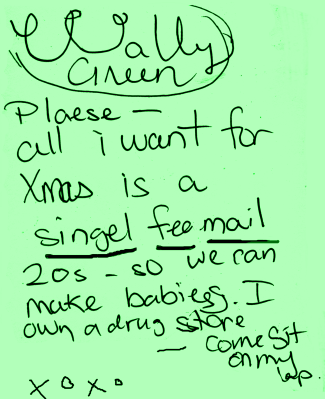 Wally
Green
Plaese —
all i want for
Xmas is a
singel fee mail
20s - so we can
make babiess. I
own a drug store
— come sit
on my
lap.
x o x o